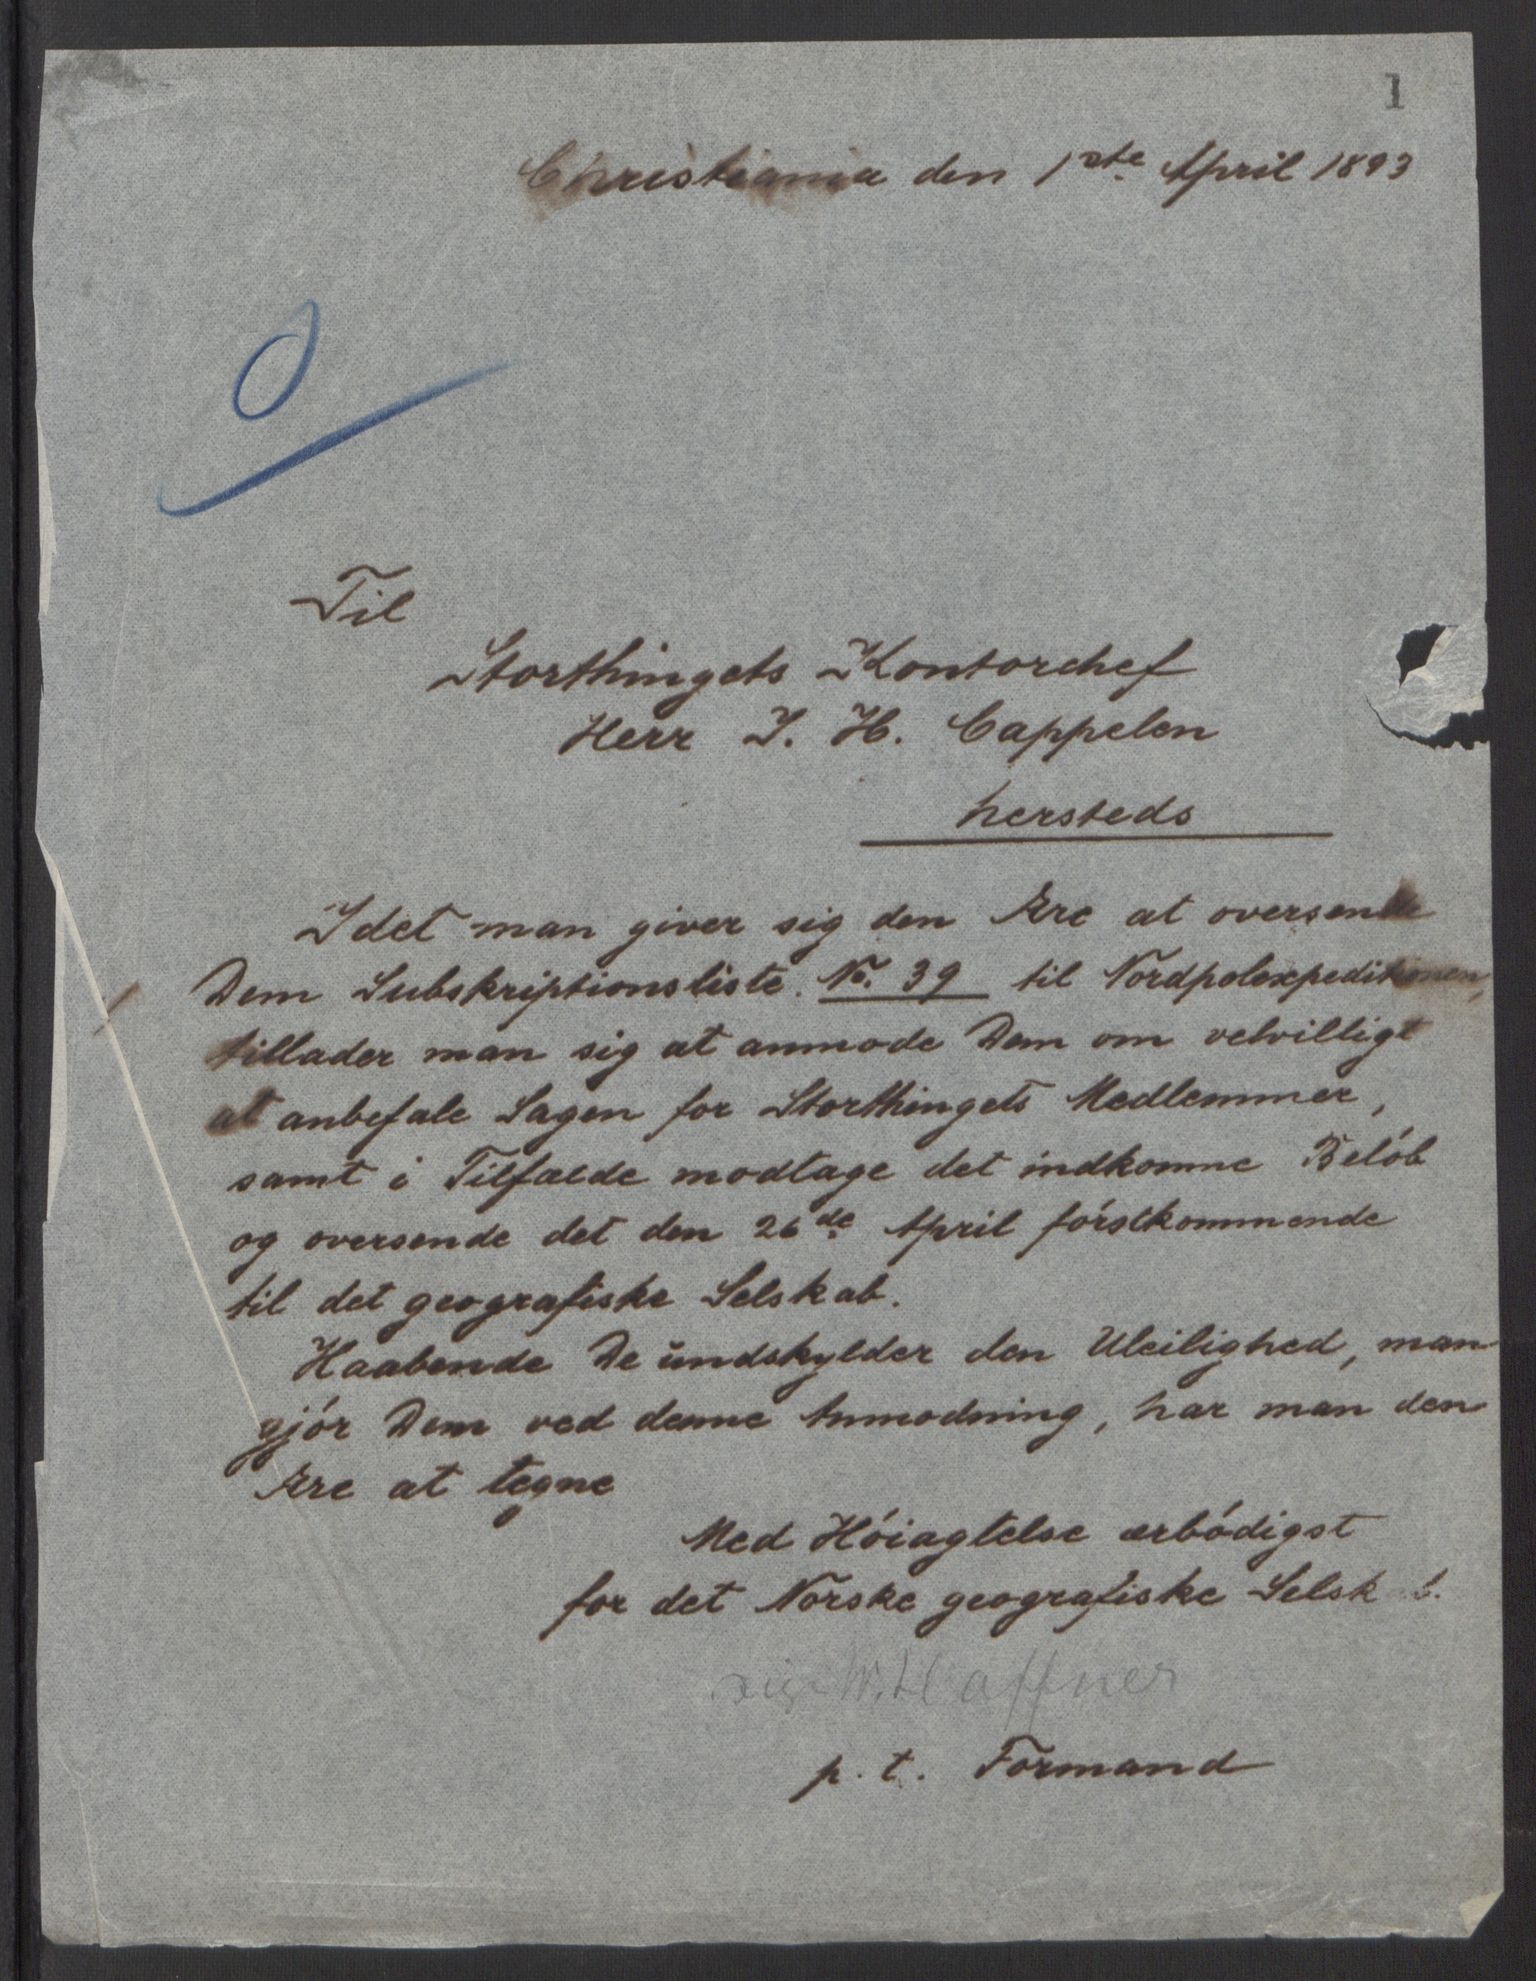 1
Christiania den 1ste April 1893
Til
Storthingets Kontorchef
Herr J. H. Cappelen
hersteds
Idet man giver sig den Ære at oversende
Dem Subskriptionsliste No. 39 til Nordpolexpeditionen,
tillader man sig at anmode Dem om velvilligt
at anbefale Sagen for Storthingets Medlemmer,
samt i Tilfælde modtage det indkomne Belób
og oversende det den 26de April fórstkommende
til det geografiske Selskab.
Haabende De ŭndskylder den Uleilighed, man
gjór Dem ved denne Anmodning, har man den
Ære at tegne
Med Hóiagtelse ærbódigst
for det Norske geografiske Selskab.
sig. W. Haffner
p. t. Formand